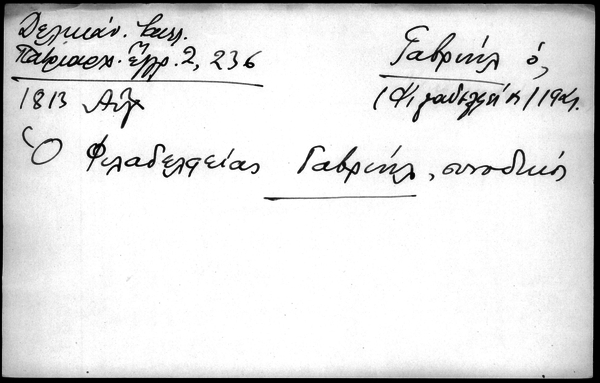 Δελικάν. Καλλ.
Πατριαρχ. ἔγγρ. 2, 236
Γαβριήλ ὁ,
(Φιλαδελφείας)
1813 Αὔγ
Ὁ Φιλαδελφείας Γαβριήλ, συνοδικός